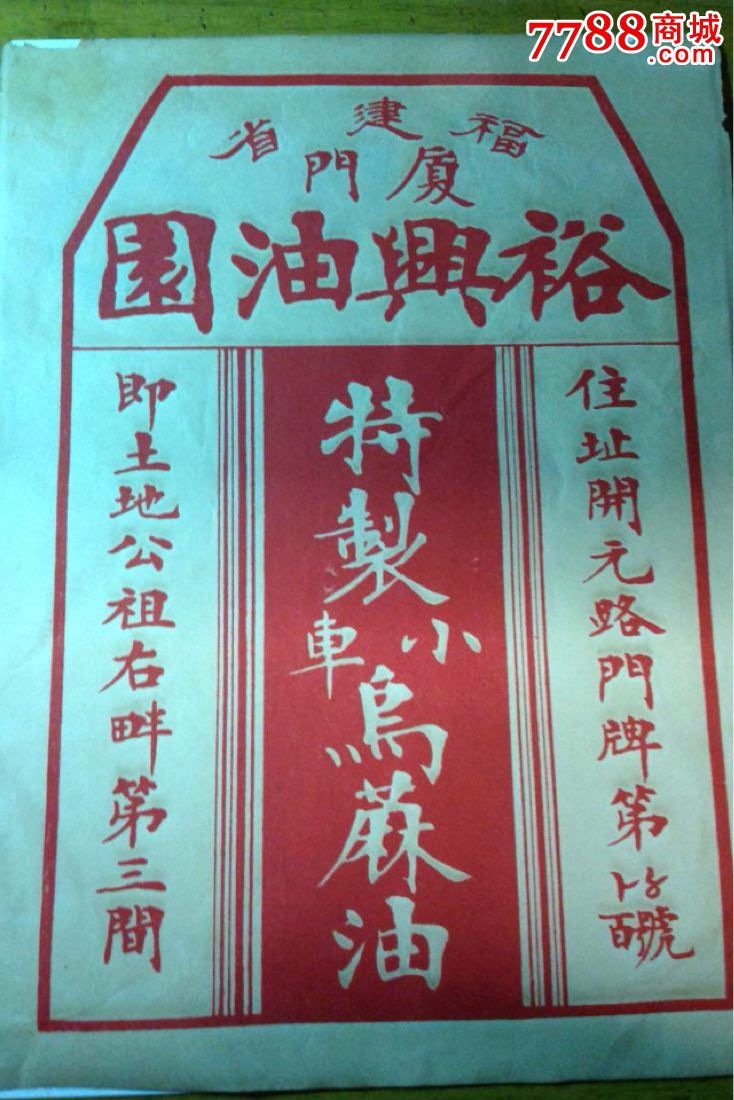 7788商城
.com
福建省
厦門
裕興油園
住址開元路門牌第
百號
特製
小車
烏蔴油
即土地公祖右畔第三間